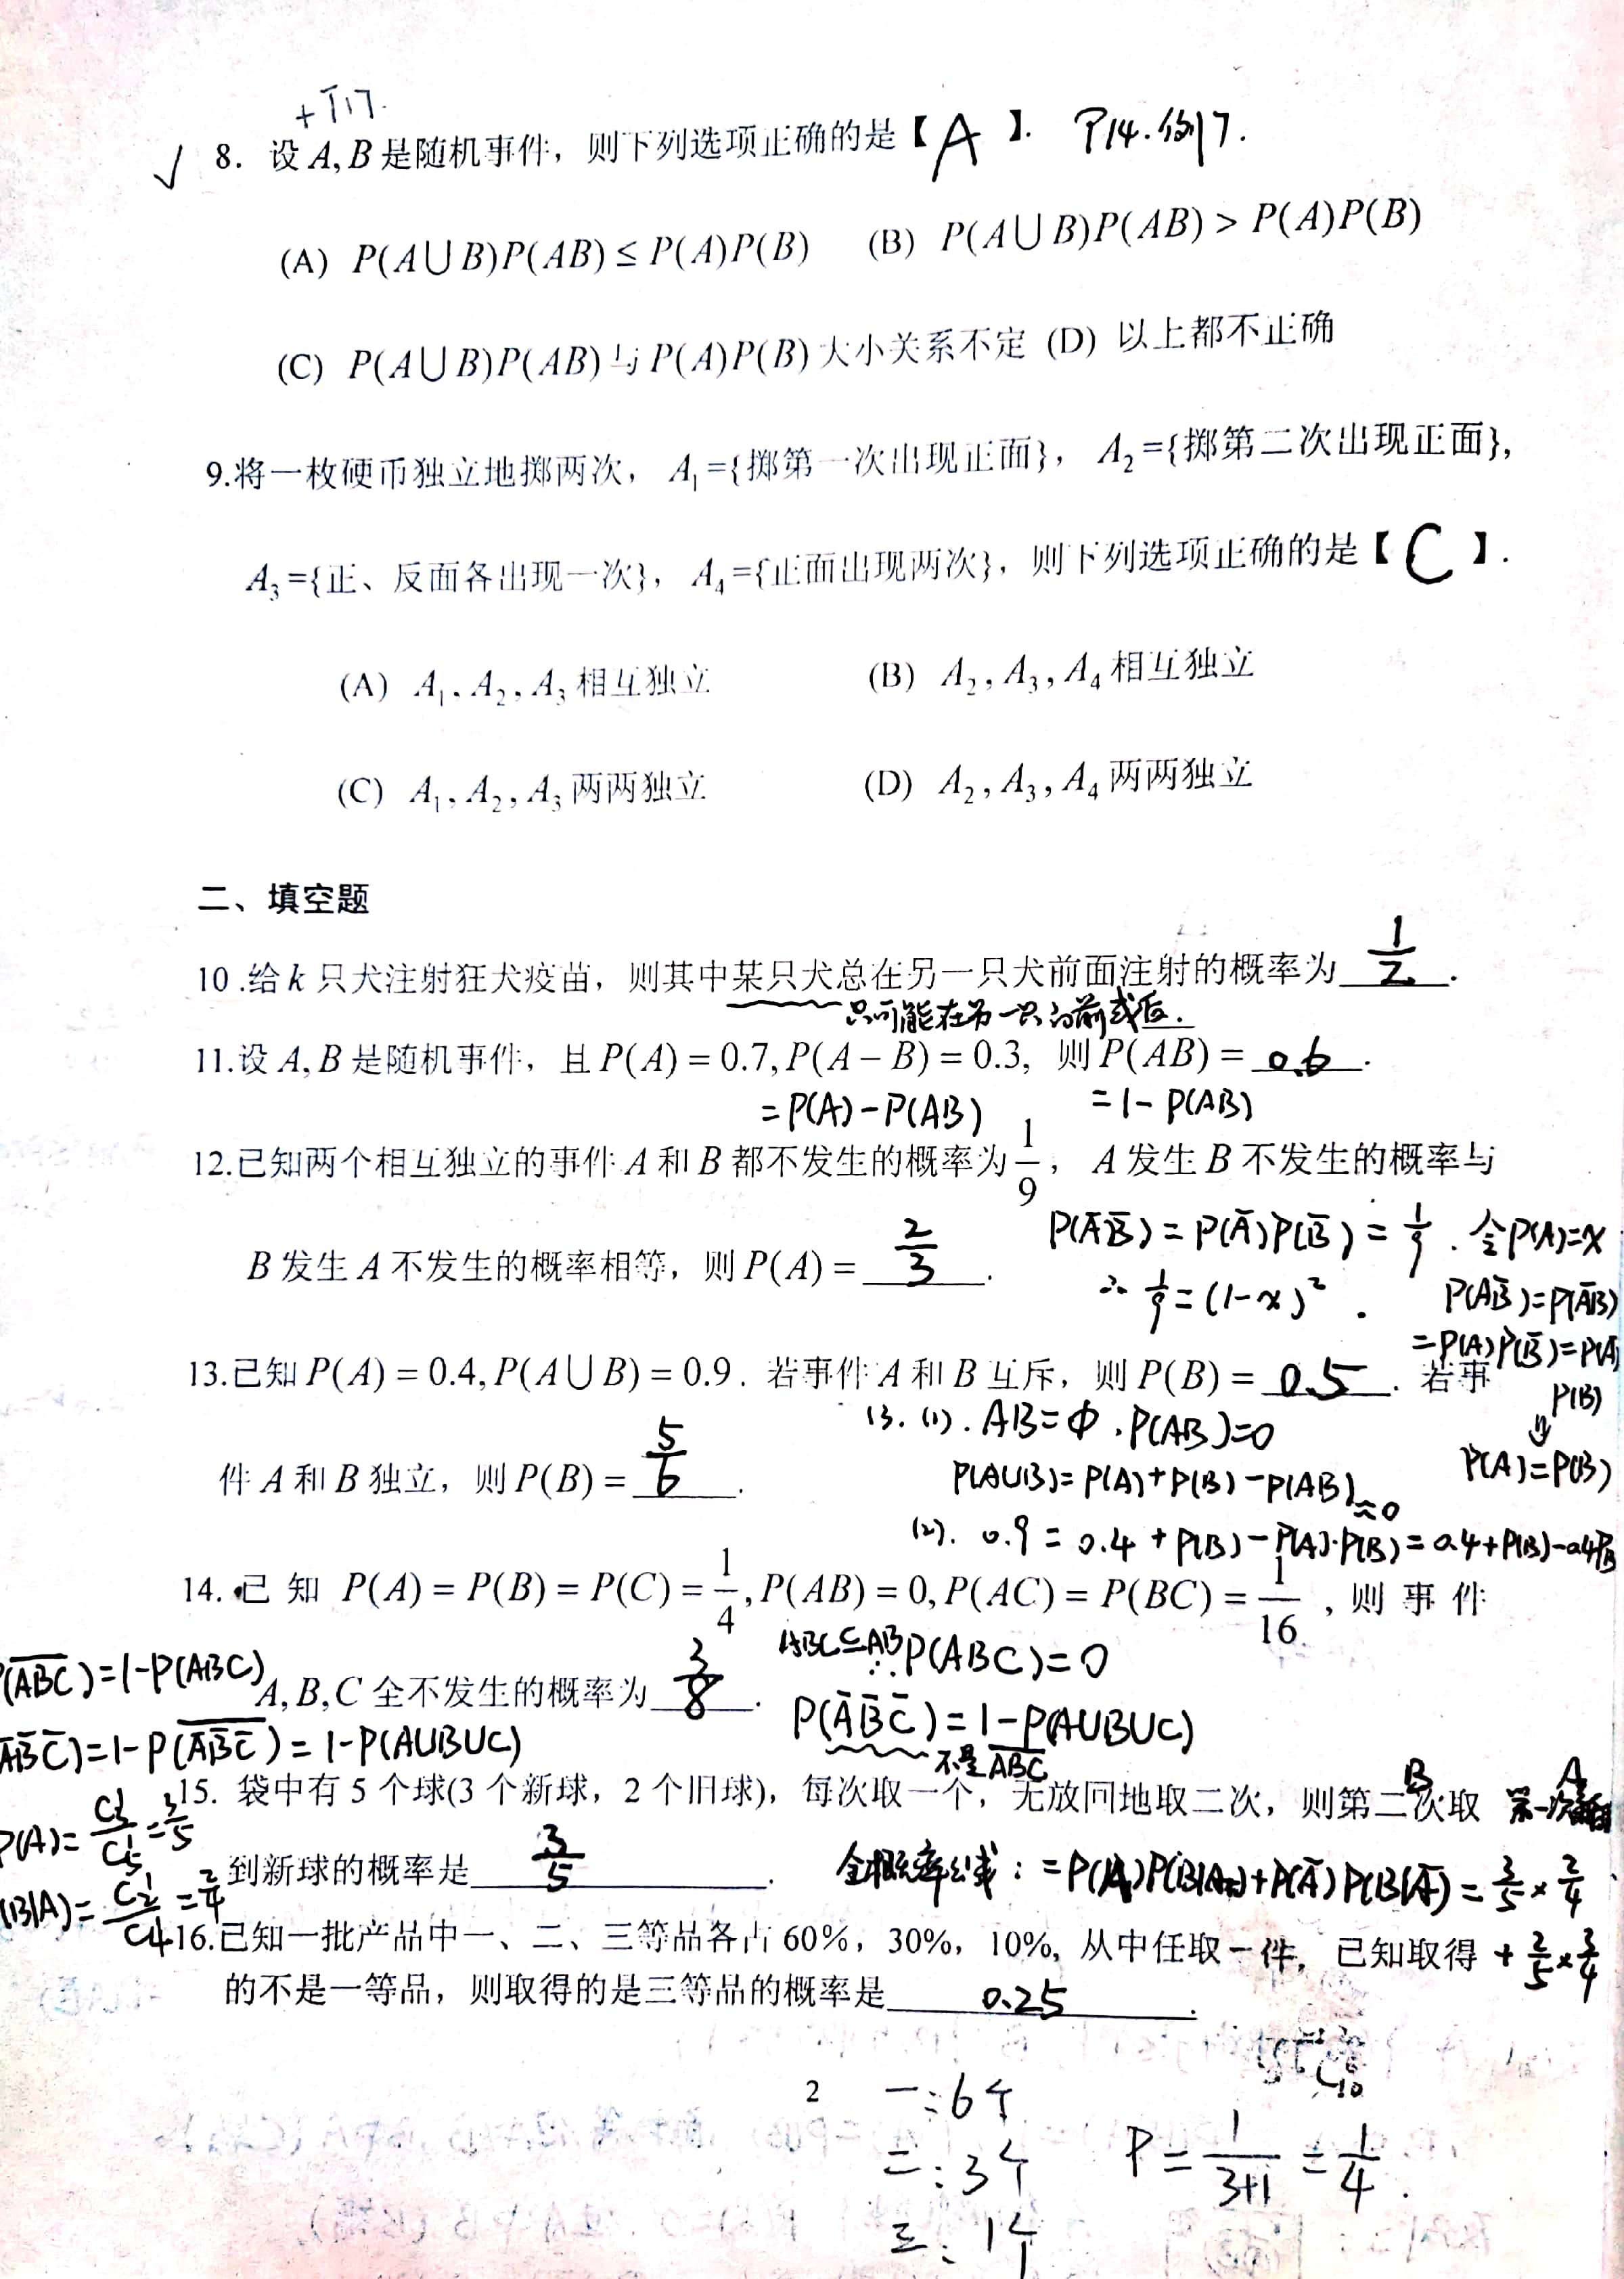 +T17.
√ 8. 设 A, B 是随机事件，则下列选项正确的是【 A 】. P14.例17.
(A) P(A∪B)P(AB) ≤ P(A)P(B) (B) P(A∪B)P(AB) > P(A)P(B)
(C) P(A∪B)P(AB) 与 P(A)P(B) 大小关系不定 (D) 以上都不正确
9.将一枚硬币独立地掷两次， A₁={掷第一次出现正面}， A₂={掷第二次出现正面}，
A₃={正、反面各出现一次}， A₄={正面出现两次}，则下列选项正确的是【 C 】.
(A) A₁, A₂, A₃ 相互独立 (B) A₂, A₃, A₄ 相互独立
(C) A₁, A₂, A₃ 两两独立 (D) A₂, A₃, A₄ 两两独立
二、填空题
10 .给 k 只犬注射狂犬疫苗，则其中某只犬总在另一只犬前面注射的概率为 1/2 .
只可能在另一只的前或后.
11.设 A, B 是随机事件，且 P(A) = 0.7, P(A − B) = 0.3, 则 P(AB) = 0.6 .
= P(A) − P(AB) = 1 − P(AB)
12.已知两个相互独立的事件 A 和 B 都不发生的概率为 1/9 ， A 发生 B 不发生的概率与
B 发生 A 不发生的概率相等，则 P(A) = 2/3 .
P(A̅B̅) = P(A̅)P(B̅) = 1/9 . 令P(A)=x
∴ 1/9 = (1−x)² .
P(AB̅)=P(A̅B)
=P(A)P(B̅)=P(A̅)
P(B)
⇓
P(A)=P(B)
13.已知 P(A) = 0.4, P(A∪B) = 0.9 . 若事件 A 和 B 互斥，则 P(B) = 0.5 . 若事
13. (1). AB=Φ . P(AB)=0
件 A 和 B 独立，则 P(B) = 5/6 .
P(A∪B)= P(A)+P(B) −P(AB) =0
(2). 0.9 = 0.4 + P(B) − P(A)·P(B) = 0.4+P(B)−0.4PB
14. 已 知 P(A) = P(B) = P(C) = 1/4, P(AB) = 0, P(AC) = P(BC) = 1/16 , 则 事 件
ABC⊆AB ∴P(ABC)=0
A, B, C 全不发生的概率为 3/8 .
P(A̅B̅C̅) = 1−P(A∪B∪C)
不是 A̅B̅C̅
(A̅B̅C̅)=1−P(ABC)
A̅B̅C̅)=1−P(A̅B̅C̅) = 1−P(A∪B∪C)
15. 袋中有 5 个球(3 个新球，2 个旧球)，每次取一个，无放回地取二次，则第二次取
B A
到新球的概率是 3/5 .
全概率公式：=P(A)P(B|A)+P(A̅)P(B|A̅) = 3/5 × 2/4
+ 2/5 × 3/4
P(A)= C₃¹/C₅¹ = 3/5
(B|A)= C₂¹/C₄¹ = 2/4
16.已知一批产品中一、二、三等品各占 60%，30%，10%, 从中任取一件，已知取得
的不是一等品，则取得的是三等品的概率是 0.25 .
2
一:6个
二:3个
三:1个
P = 1/(3+1) = 1/4 .